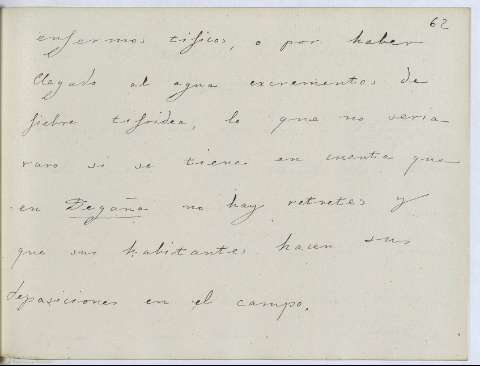 62
enfermos tificos, o por haber
llegado al agua excrementos de
fiebre tifoidea, lo que no seria
raro si se tiene en cuenta que
en Degaña no hay retretes y
que sus habitantes hacen sus
deposiciones en el campo.